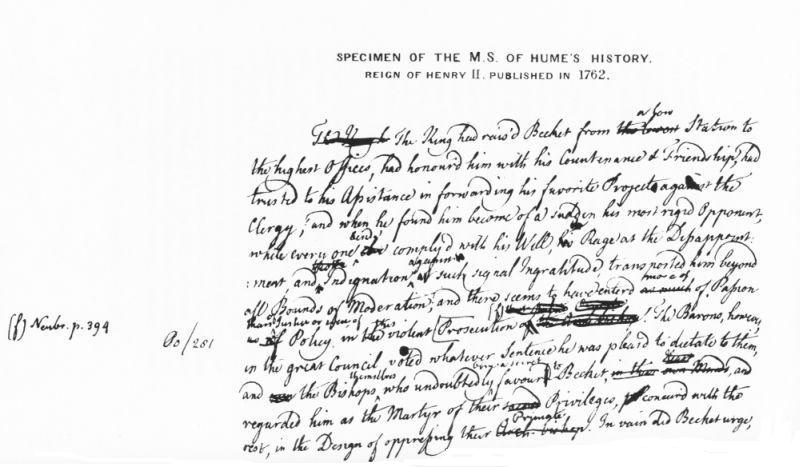 SPECIMEN OF THE M.S. OF HUME'S HISTORY.
REIGN OF HENRY II. PUBLISHED IN 1762.
a low
The King had rais'd Becket from the lowest Station to
the highest Offices, had honour'd him with his Countenance & Friendship, had
trusted to his Assistance in forwarding his favorite Project against the
Clergy; and when he found him become of a sudden his most rigid Opponent,
beside
while every one complyd with his Will, Rage at the Disappoint:
against
:ment, and Indignation at such signal Ingratitude transported him beyond
more of
all Bounds of Moderation; and there seems to have enterd as much of Passion
than Justice or even of this
(f) Neubr. p. 394
Po/281
of Policy, in the violent Prosecution (f). The Barons, however,
in the great Council voted whatever Sentence he was pleasd to dictate to them,
themselves
and the Bishops, who undoubtedly favour'd Becket, in their own Minds, and
regarded him as the Martyr of their Privileges, concurd with the
Primate
rest, in the Design of oppressing their Arch-bishop. In vain did Becket urge,